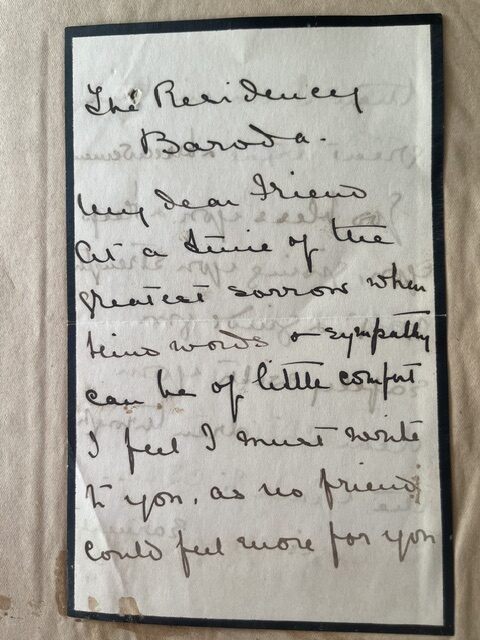 The Residency
Baroda.
My dear Friend
At a time of the
greatest sorrow when
kind words & sympathy
can be of little comfort
I feel I must write
to you, as no friend
could feel more for you